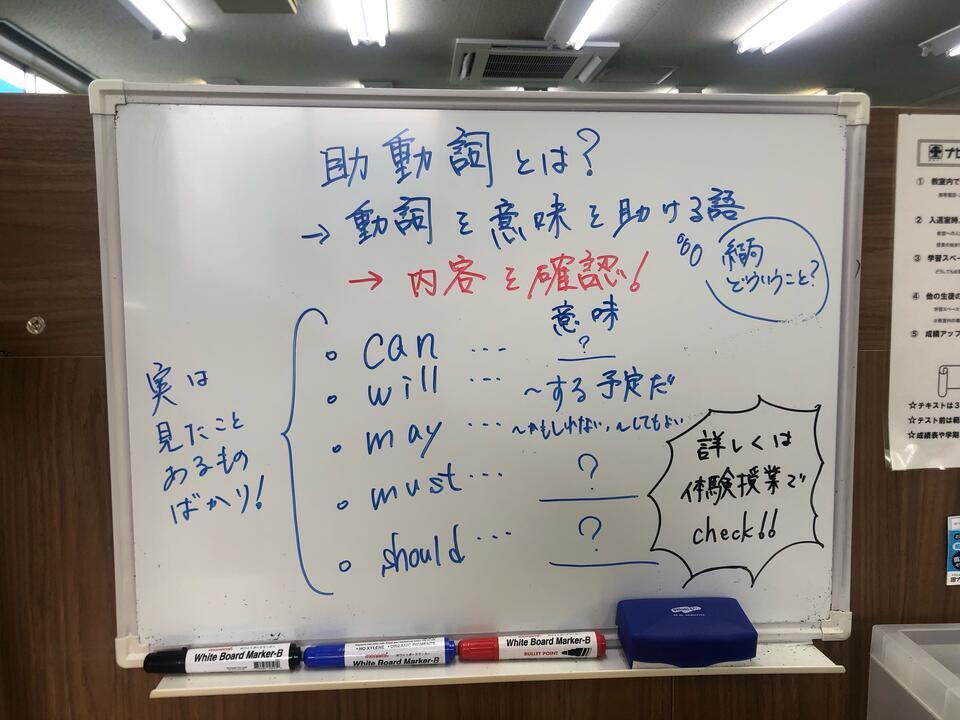 助動詞とは?
→ 動詞を意味を助ける語
→ 内容を確認!
結局
どういうこと?
意味
• can … ?
• will … ~する予定だ
• may … ~かもしれない, ~してもよい
• must … ?
• should … ?
実は
見たこと
あるもの
ばかり!
詳しくは
体験授業で
check!!
White Board Marker-B
・NO XYLENE ・ORGANIC PIGMENTS
White Board Marker-B
White Board Marker-B
BULLET POINT
① 教室内で
② 入退室時、
③ 学習スペー
④ 他の生徒の
⑤ 成績アップ
☆テキストは3
☆テスト前は範
☆成績表や学期